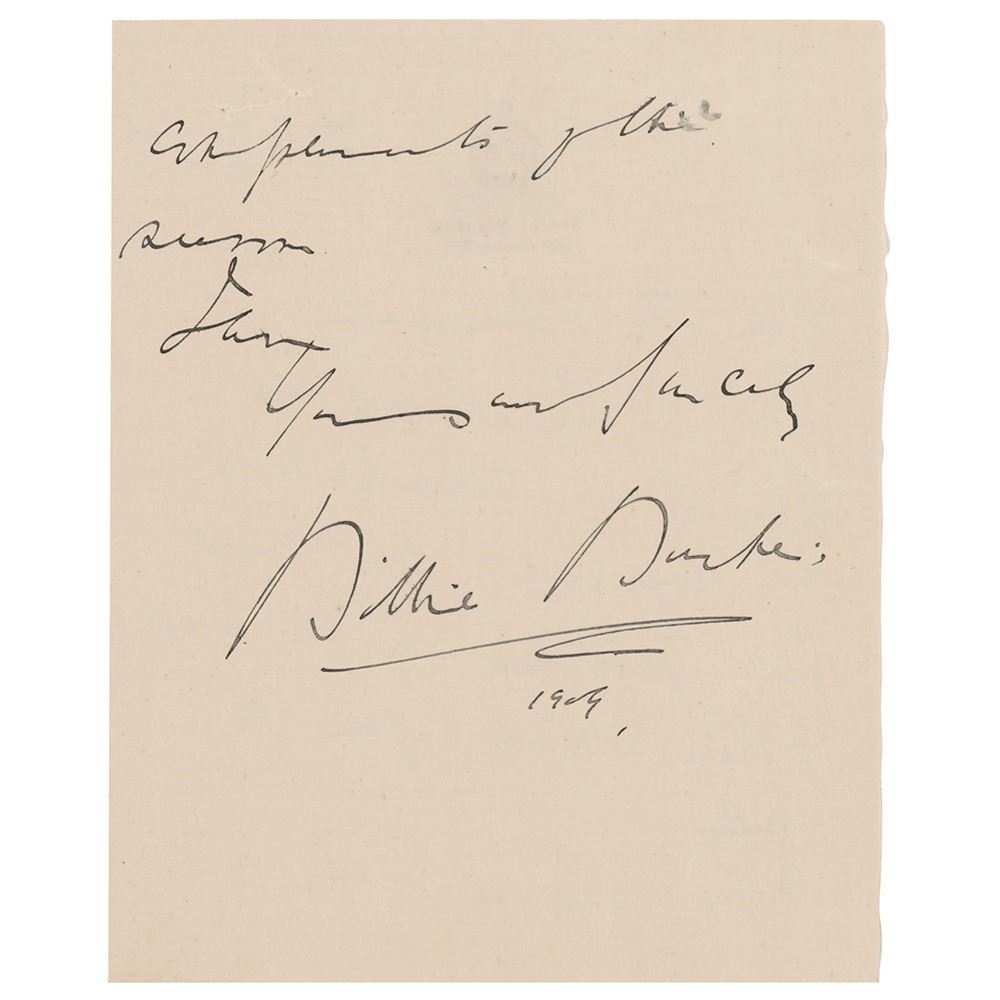 Compliments of the
season.
I am
Yours very Sincerely
Billie Burke.
1909